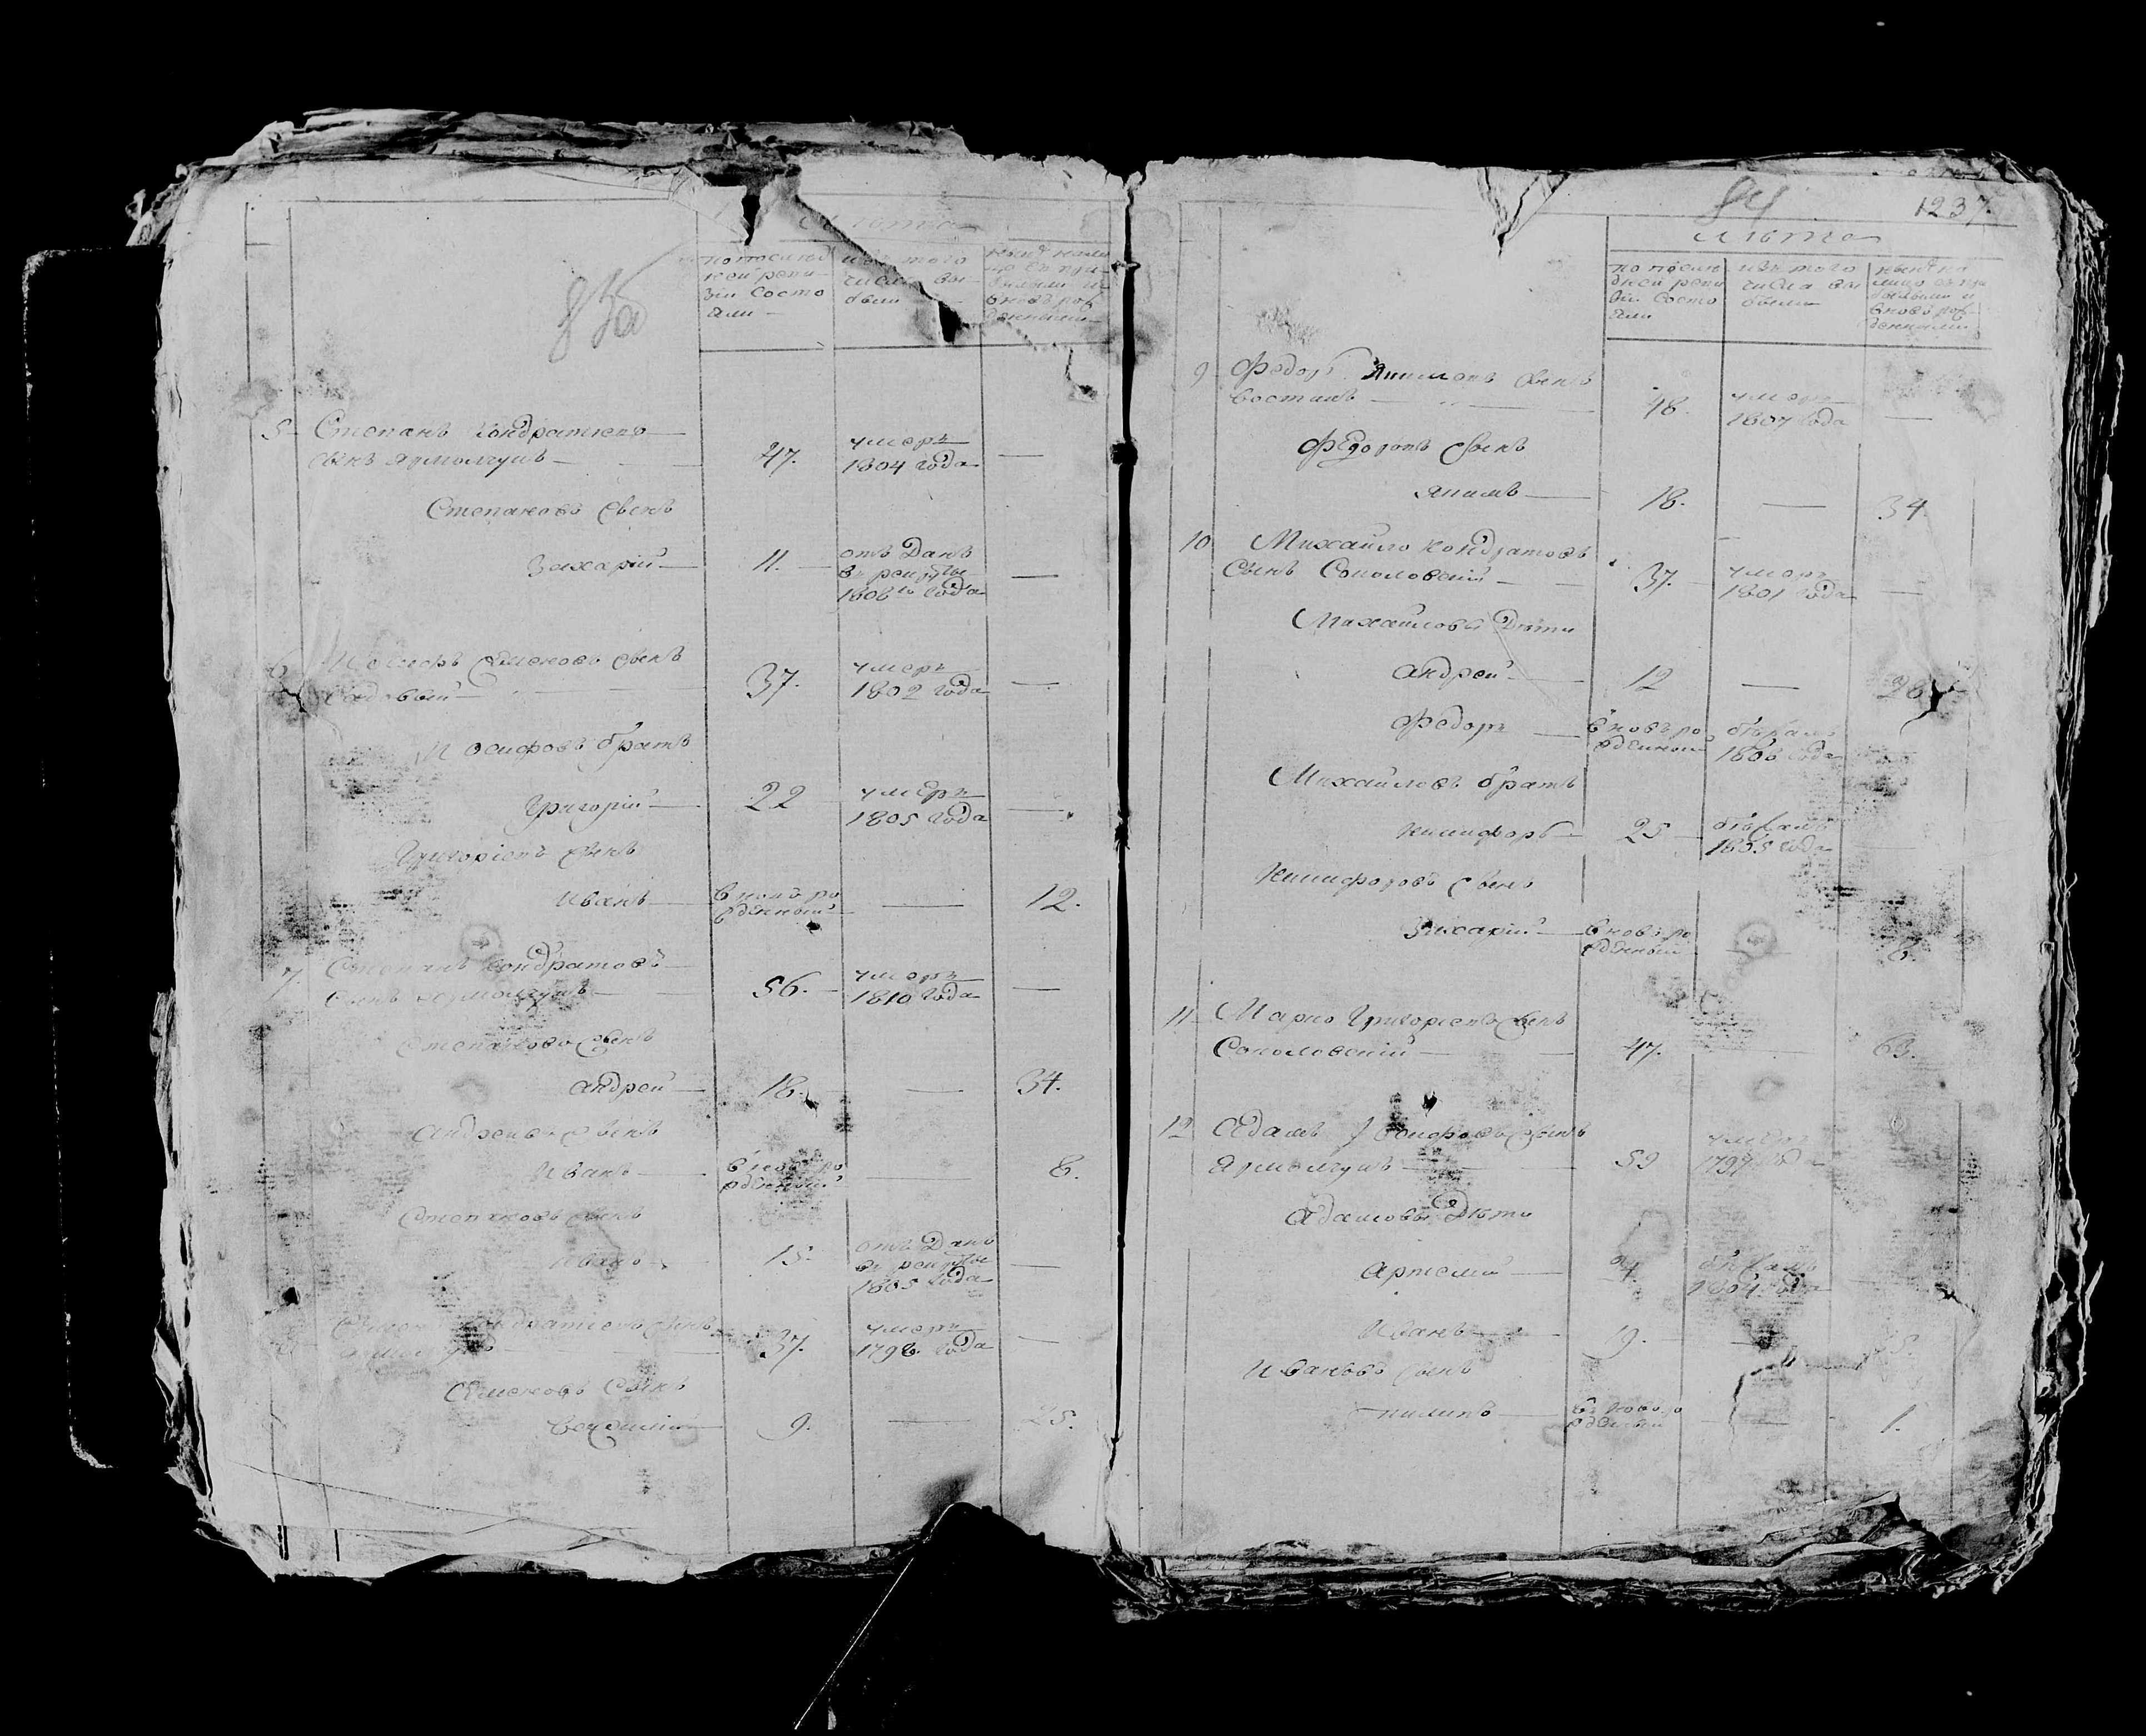 Лѣта
по послѣд
ней реви
зіи состо
яли
изъ того
числа вы
были
85об
5 Степанъ Кондратьевъ
сынъ Ярмолчукъ 47. умеръ
1804 года —
Степановъ сынъ
Захарій 11. отъ Данъ
въ рекруты
1808го года —
6 Семеновъ сынъ
Садовый 37. умеръ
1802 года —
Иосифовъ братъ
Григорій 22 умеръ
1805 года —
Григоріевъ сынъ
Иванъ вновь ро
жденный — 12.
7. Степанъ Кондратовъ
сынъ Ярмолчукъ 56. умеръ
1810 года —
Степановъ сынъ
Андрей 18. — 34.
Андреевъ сынъ
Иванъ вновь ро
жденный — 8.
Степановъ сынъ
Иванъ 15. отъ Данъ
въ рекруты
1805 года —
8 сынъ
37. умеръ
179 года —
Семеновъ сынъ
9. — 25.
84 1237.
Лѣта
по послѣ
дней реви
зіи состо
яли
изъ того
числа вы
были
нынѣ на
лицо съ при
былыми и
вновь рож
денными
9 Федоръ Якимовъ сынъ
48. умеръ
1807 года —
Федоровъ сынъ
Якимъ 18. — 34.
10 Михайло Кондратовъ
сынъ Соколовский 37. умеръ
1801 года —
Михайловы Дѣти
Андрей 12 — 28
Федоръ вновь ро
жденный бѣжалъ
1808 года
Михайловъ братъ
Никифоръ 25 бѣжалъ
1805 года —
Никифоровъ сынъ
Захарій вновь ро
жденный —
11 Марко Григоріевъ сынъ
Соколовскій 47. 63.
12 Адамъ Іосифовъ сынъ
Ярмолчукъ 59 умеръ
1797 года
Адамовы Дѣти
Артемий бѣжалъ
1804 года
Иванъ 19. —
Ивановъ сынъ
Пилипъ вновь ро
жденный — 1.